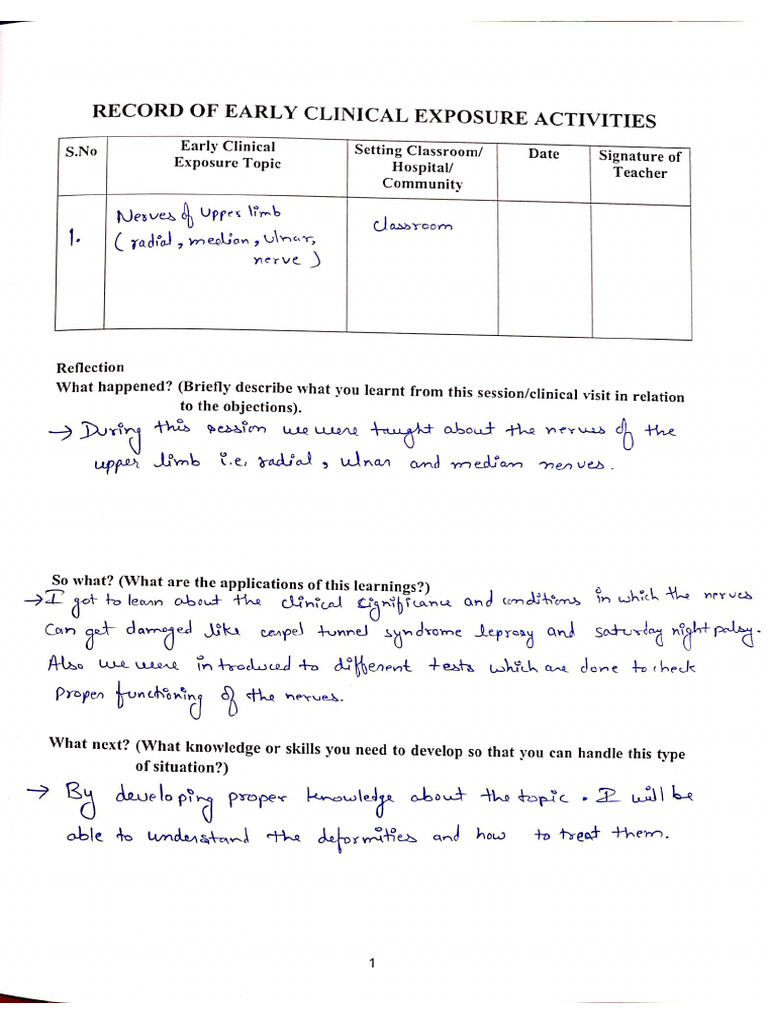 RECORD OF EARLY CLINICAL EXPOSURE ACTIVITIES
S.No
Early Clinical
Exposure Topic
Setting Classroom/
Hospital/
Community
Date
Signature of
Teacher
1.
Nerves of Upper limb
( radial, median, Ulnar,
nerve )
Classroom
Reflection
What happened? (Briefly describe what you learnt from this session/clinical visit in relation
to the objections).
→ During this session we were taught about the nerves of the
upper limb i.e. radial, ulnar and median nerves.
So what? (What are the applications of this learnings?)
→ I got to learn about the clinical significance and conditions in which the nerves
Can get damaged like carpel tunnel syndrome leprosy and saturday night palsy.
Also we were introduced to different tests which are done to check
proper functioning of the nerves.
What next? (What knowledge or skills you need to develop so that you can handle this type
of situation?)
→ By developing proper knowledge about the topic. I will be
able to understand the deformities and how to treat them.
1